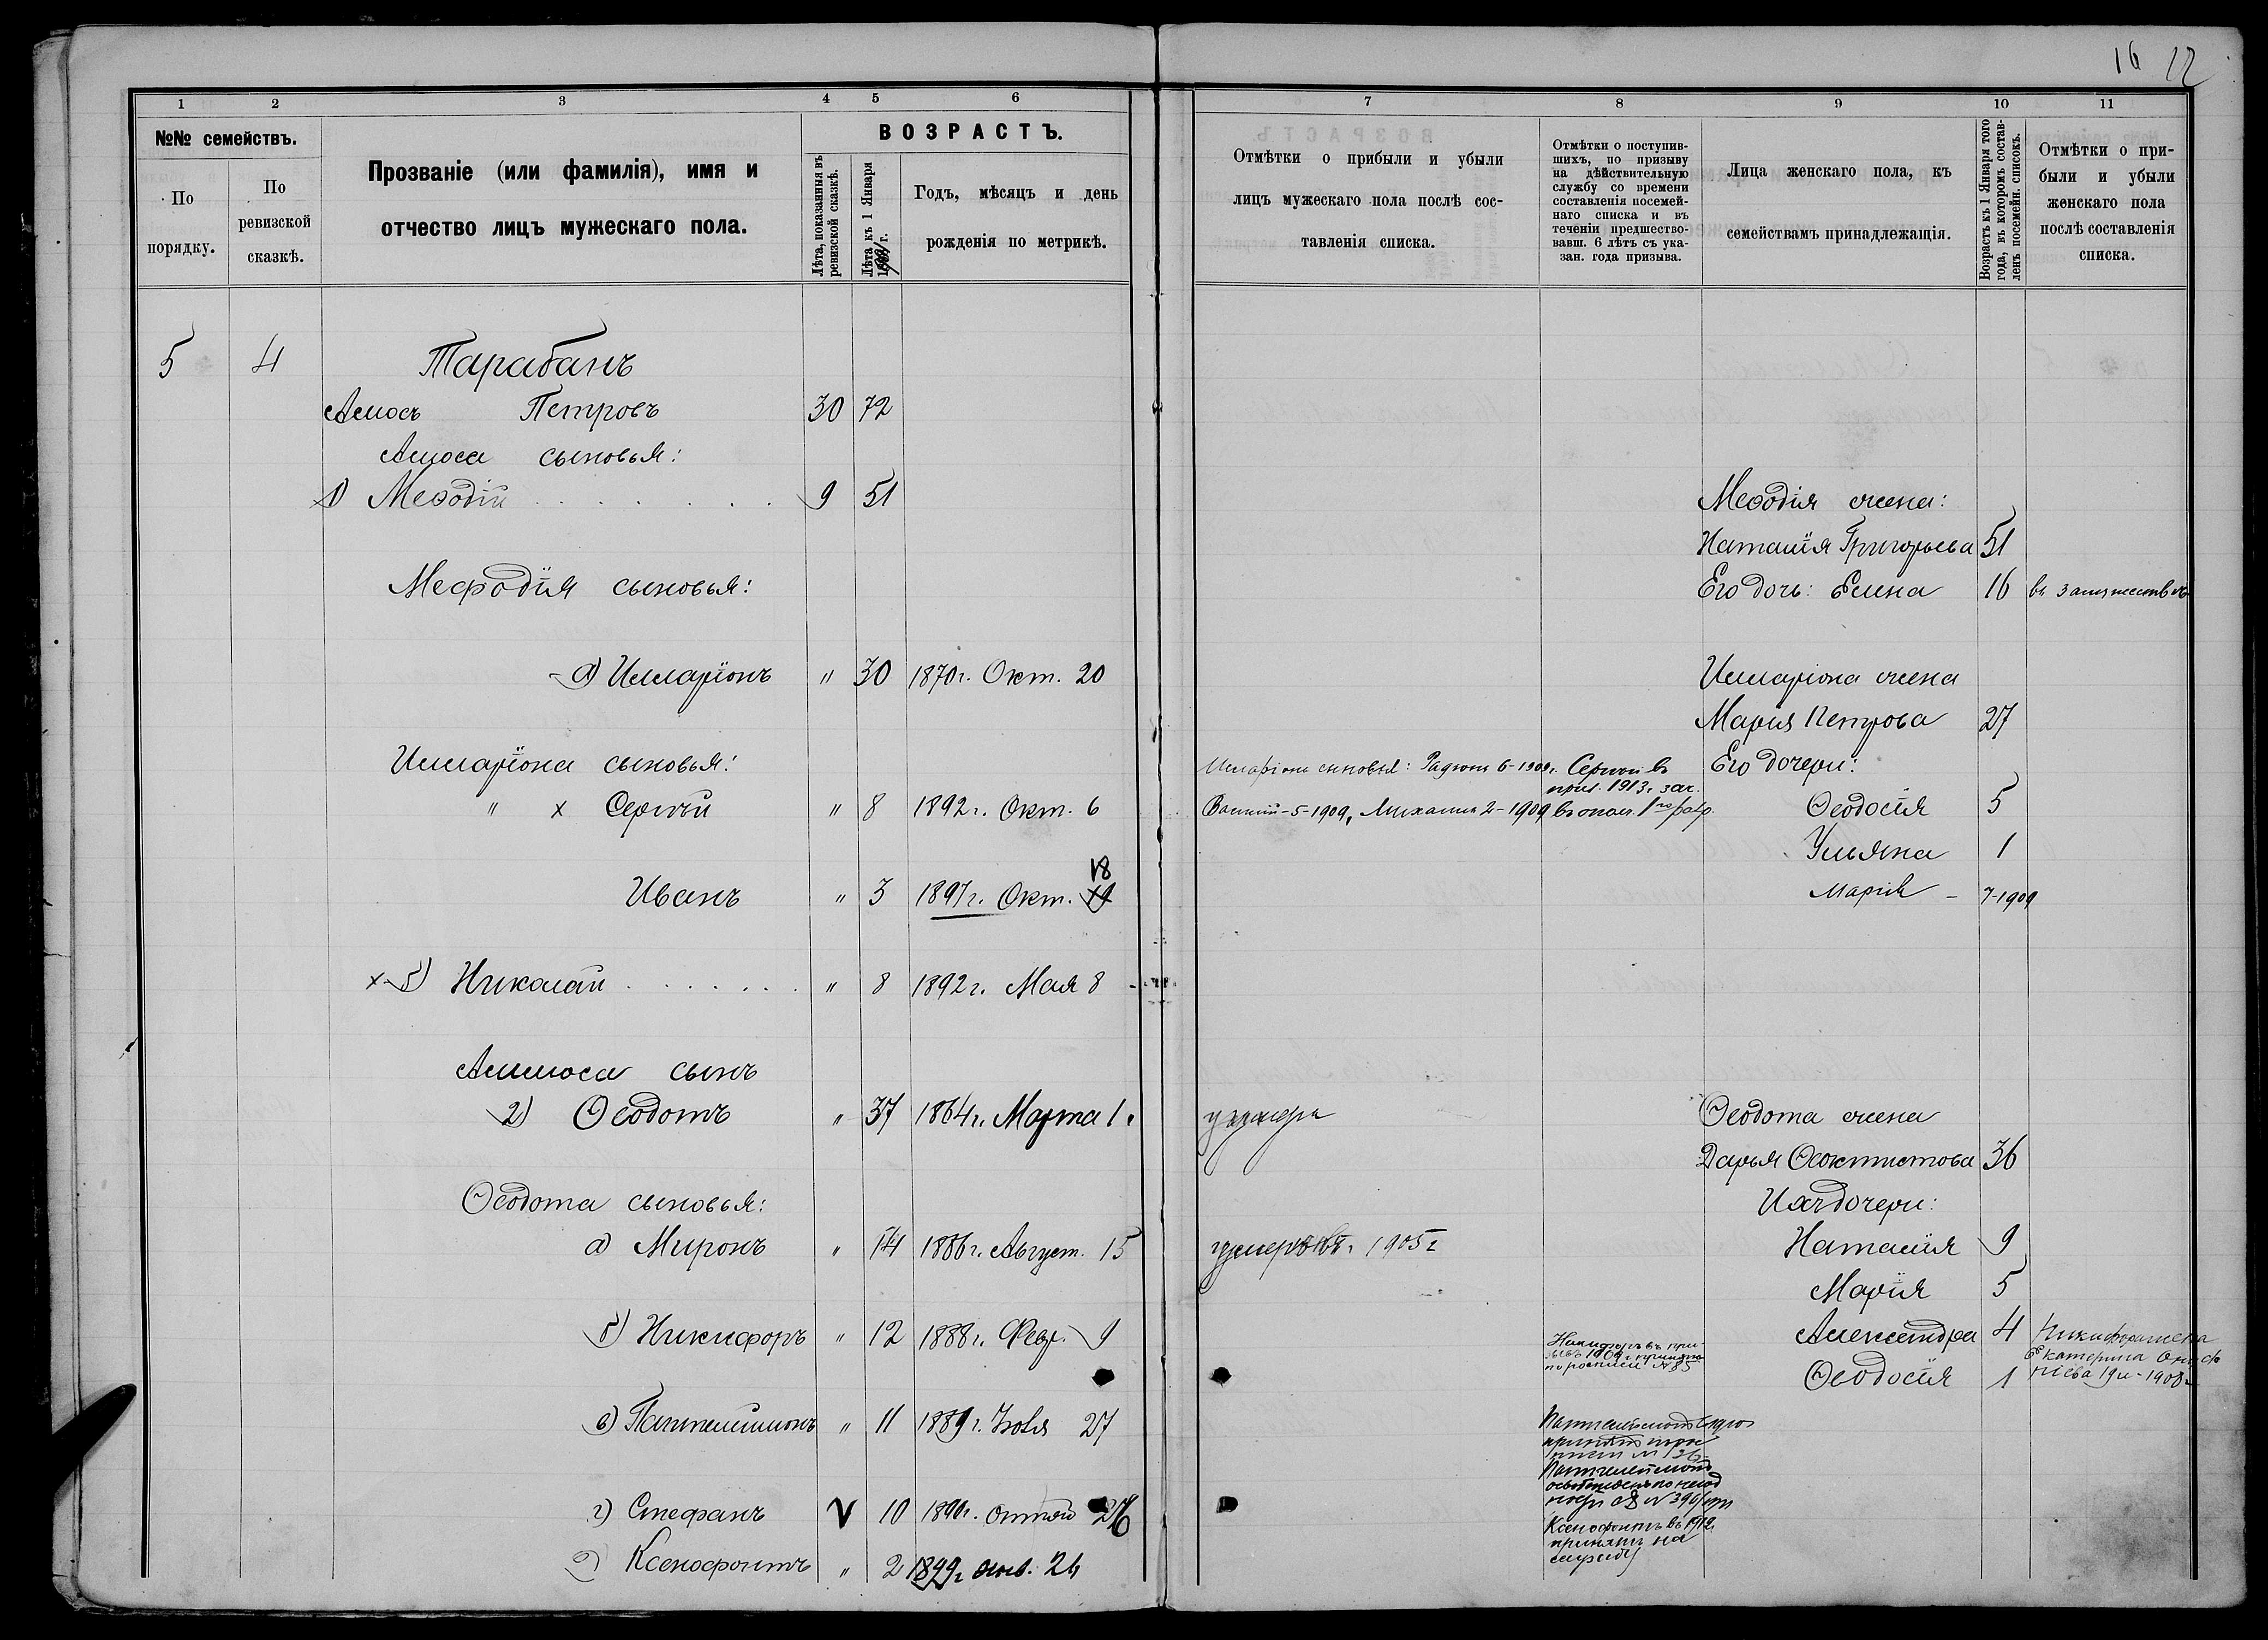 16 12
1 2 3 4 5 6
№№ семействъ.
По порядку.
По ревизской сказкѣ.
Прозваніе (или фамилія), имя и
отчество лицъ мужескаго пола.
ВОЗРАСТЪ.
Лѣта, показанныя въ ревизской сказкѣ.
Лѣта къ 1 Января
г.
Годъ, мѣсяцъ и день
рожденія по метрикѣ.
5 4 Тарабанъ
Амосъ Петровъ 30 72
Амоса сыновья:
1) Меѳодій 9 51
Мефодія сыновья:
а) Илларіонъ " 30 1870 г. Окт. 20
Илларіона сыновья:
" х Сергѣй " 8 1892 г. Окт. 6
18
Иванъ " 3 1897 г. Окт. 19
х б) Николай " 8 1892 г. Мая 8
Аммоса сынъ
2) Ѳеодотъ " 37 1864 г. Марта 1.
Ѳеодота сыновья:
а) Миронъ " 14 1886 г. Август. 15
б) Никифоръ " 12 1888 г. Февр. 9
в) Пантелиимонъ " 11 1889 г. Іюля 27
г) Стефанъ V 10 1890 г. 26
Ксенофонтъ " 2 1899 г. янв. 24
7 8 9 10 11
Отмѣтки о прибыли и убыли
лицъ мужескаго пола послѣ сос-
тавленія списка.
Отмѣтки о поступив-
шихъ, по призыву
на дѣйствительную
службу со времени
составленія посемей-
наго списка и въ
теченіи предшество-
вавш. 6 лѣтъ съ ука-
зан. года призыва.
Лица женскаго пола, къ
семействамъ принадлежащія.
Возрастъ къ 1 Января того
года, въ которомъ состав-
ленъ посемейн. списокъ.
Отмѣтки о при-
были и убыли
женскаго пола
послѣ составленія
списка.
Меѳодія жена:
Наталія Григорьева 51
Его дочь: Елена 16 въ замужествѣ
Илларіона жена
Марія Петрова 27
Илларіона сыновья: Радіонъ 6-1909г. Сергѣй въ Его дочери:
приз. 1913 г. зач.
Василій-5-1909, Михаилъ 2-1909 въ опол. 1го разр. Ѳеодосія 5
Ульяна 1
Марія - 7-1909
Ѳеодота жена
Дарья Ѳеоктистова 36
Ихъ дочери:
1905 г Наталія 9
Марія 5
Александра 4 Никифора жена
Никифоръ въ при
1909 г. принятъ
по росписи № 85
Екатерина
19 л - 1908 г
Ѳеодосія 1
Ксенофонтъ въ 1912
принятъ на
службу